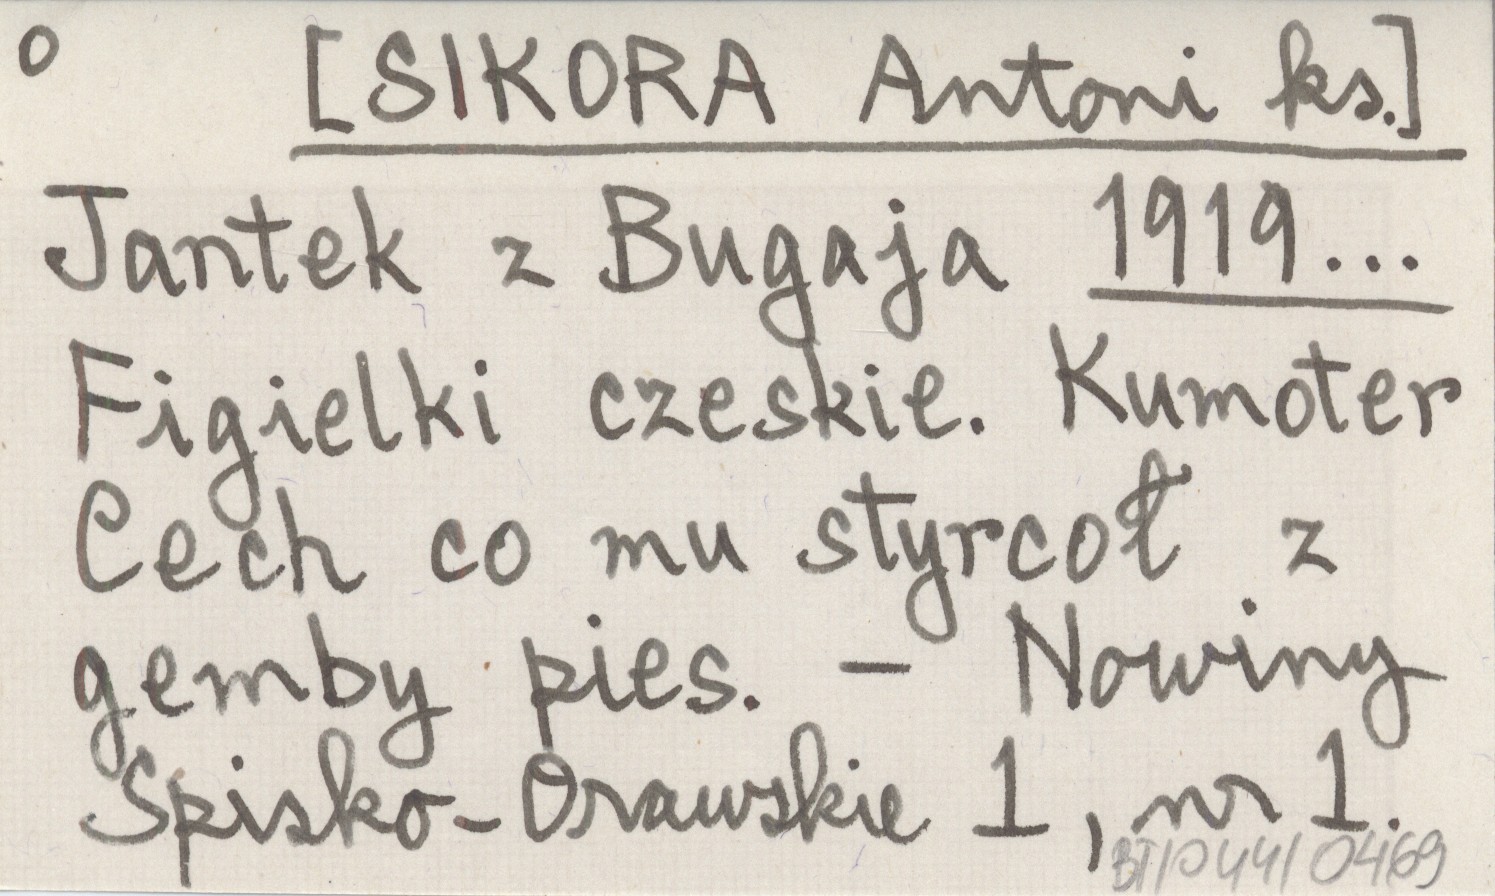 O [SIKORA Antoni ks.]
Jantek z Bugaja 1919...
Figielki czeskie. Kumoter
Cech co mu styrcoł z
gemby pies. – Nowiny
Spisko-Orawskie 1, nr 1.
BT/P44/0469